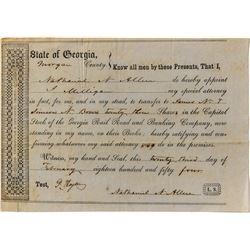 State of Georgia,
Morgan County } Know all men by these Presents, That I,
Nathaniel N. Allen do hereby appoint
J. Milligan my special attorney
in fact, for me, and in my stead, to transfer to James N. &
Simeon N. Brown twenty three Shares in the Capitol
Stock of the Georgia Rail Road and Banking Company, now
standing in my name, on their Books; hereby ratifying and con-
firming whatsoever my said attorney may do in the premises.
Witness, my hand and Seal, this twenty third day of
February eighteen hundred and fifty four
Test,
Nathaniel N. Allen L. S.